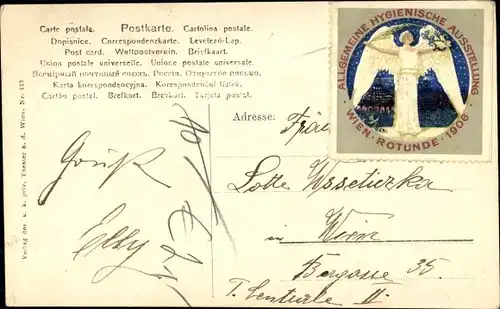 Carte postale. Postkarte. Cartolina postale.
Dopisnice. Correspondenzkarte. Levelező-Lap.
Post card. Weltpostverein. Briefkaart.
Union postale universelle. Unione postale universale.
Всемірный почтовый союзъ. Россія. Открытое письмо.
Karta korespondencyjna. Korespondenční lístek.
Cartão postal. Brefkort. Brevkort. Tarjeta postal.
ALLGEMEINE HYGIENISCHE AUSSTELLUNG
WIEN · ROTUNDE · 1906
Adresse:
Lotte
in Wien
Berggasse 35.
T. Centrale II
Gruß
Elly
Verlag des u. k. priv. Theater a. d. Wien. Nr.